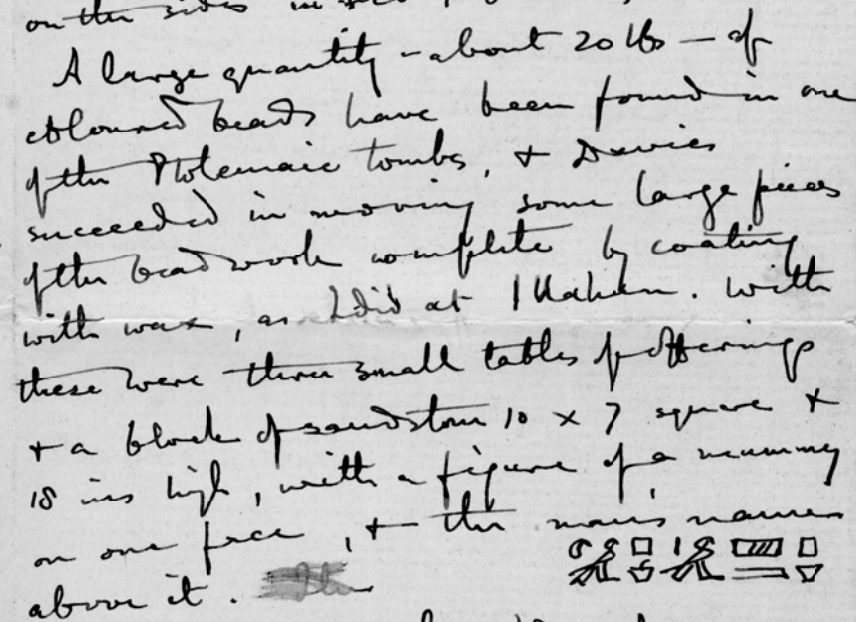 on the sides in
A large quantity - about 20 lbs - of
coloured beads have been found in one
of the Ptolemaic tombs, + Davies
succeeded in moving some large pieces
of the bead work complete by coating
with wax, as I did at Illahun. With
these were three small tables of offerings
+ a block of sandstone 10 x 7 square +
18 ins high, with a figure of a mummy
on one face, + the man's names
above it.